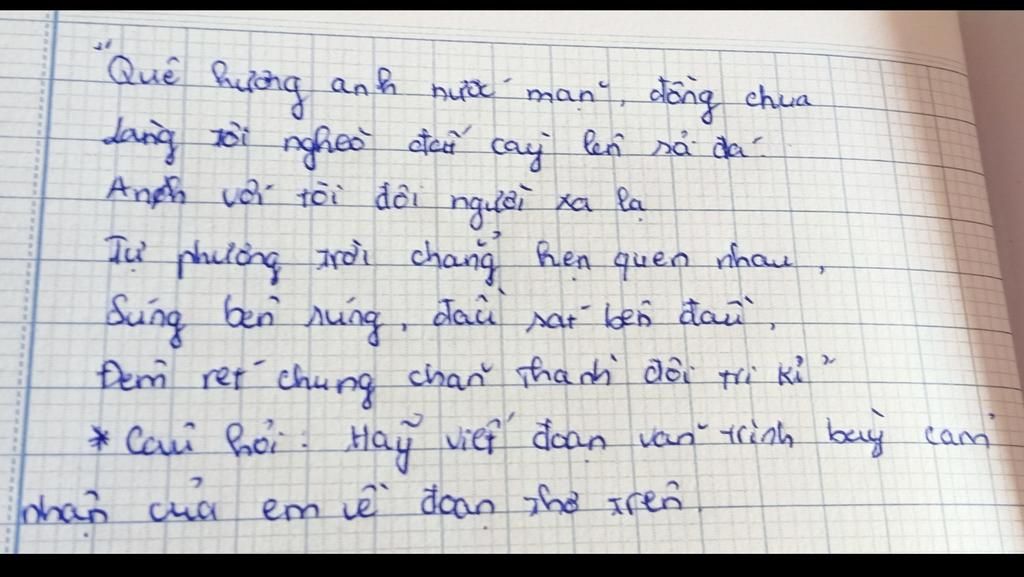 "Quê hương anh nước mặn, đồng chua
Làng tôi nghèo đất cày lên sỏi đá
Anh với tôi đôi người xa lạ
Tự phương trời chẳng hẹn quen nhau,
Súng bên súng, đầu sát bên đầu,
Đêm rét chung chăn thành đôi tri kỉ"
* Câu hỏi: Hãy viết đoạn văn trình bày cảm
nhận của em về đoạn thơ trên.